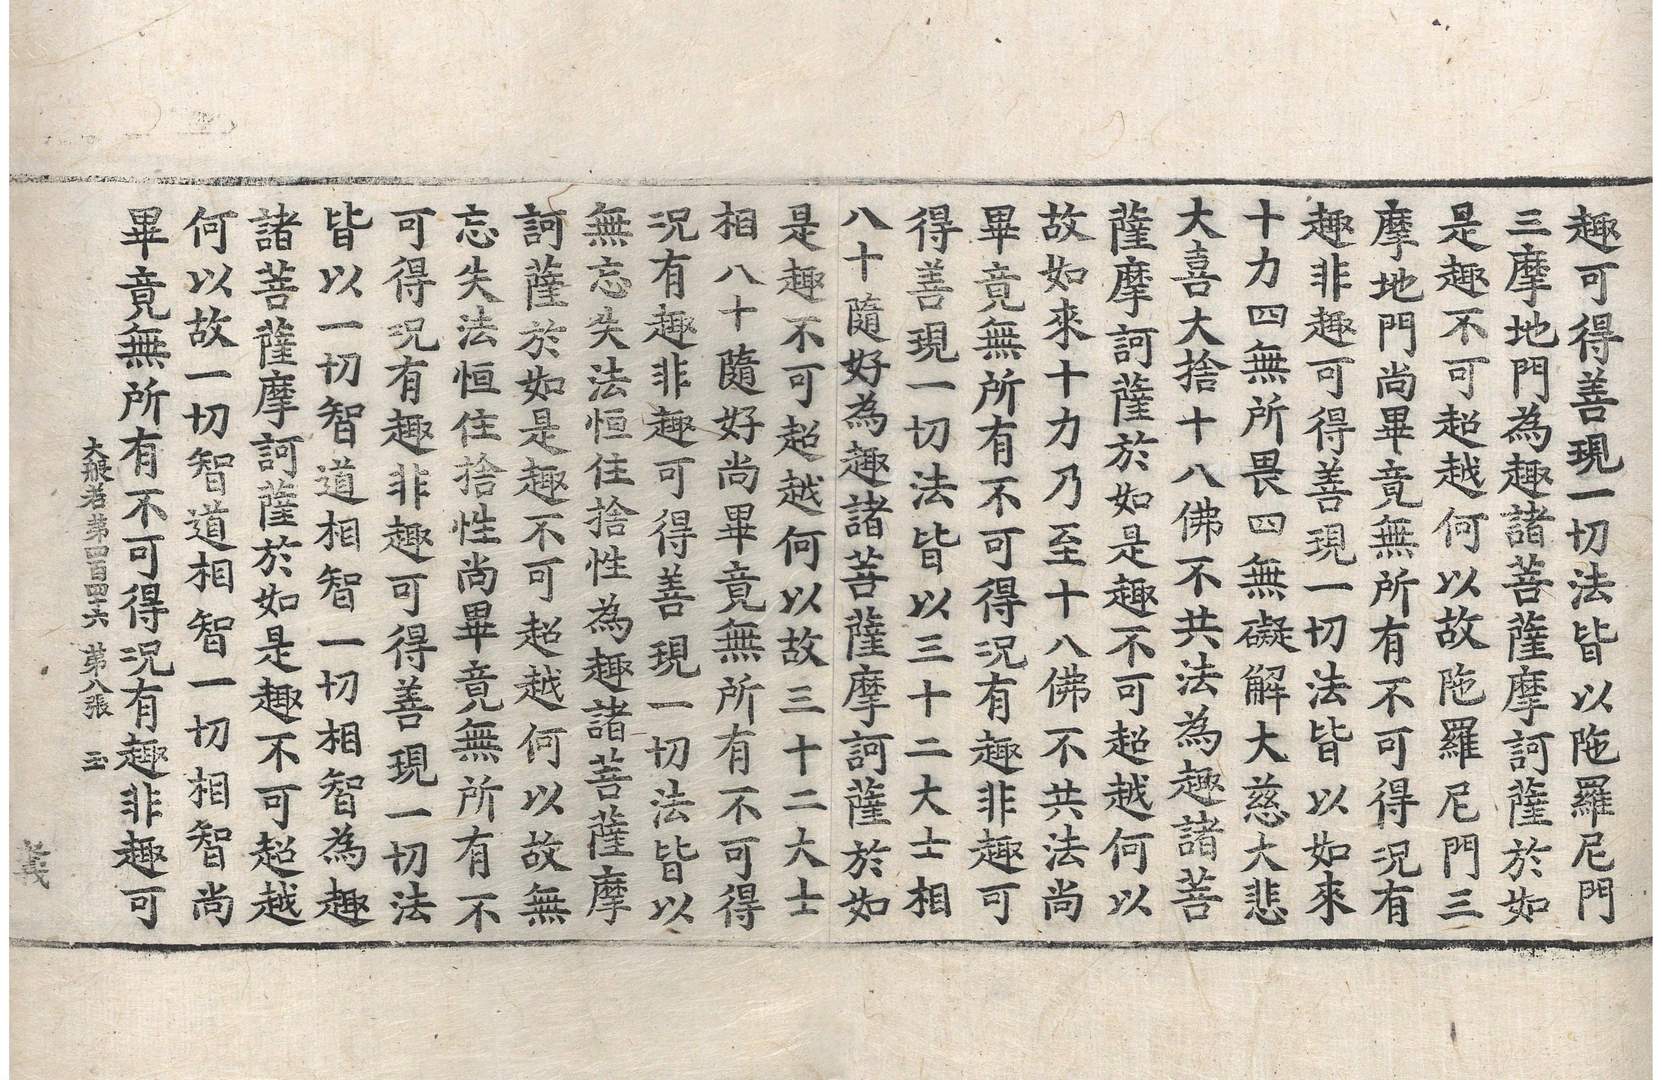 趣可得善現一切法皆以陁羅尼門
三摩地門為趣諸菩薩摩訶薩於如
是趣不可超越何以故陁羅尼門三
摩地門尚畢竟無所有不可得況有
趣非趣可得善現一切法皆以如來
十力四無所畏四無礙解大慈大悲
大喜大捨十八佛不共法為趣諸菩
薩摩訶薩於如是趣不可超越何以
故如來十力乃至十八佛不共法尚
畢竟無所有不可得況有趣非趣可
得善現一切法皆以三十二大士相
八十隨好為趣諸菩薩摩訶薩於如
是趣不可超越何以故三十二大士
相八十隨好尚畢竟無所有不可得
況有趣非趣可得善現一切法皆以
無忘失法恒住捨性為趣諸菩薩摩
訶薩於如是趣不可超越何以故無
忘失法恒住捨性尚畢竟無所有不
可得況有趣非趣可得善現一切法
皆以一切智道相智一切相智為趣
諸菩薩摩訶薩於如是趣不可超越
何以故一切智道相智一切相智尚
畢竟無所有不可得況有趣非趣可
大般若第四百四十六 第八張